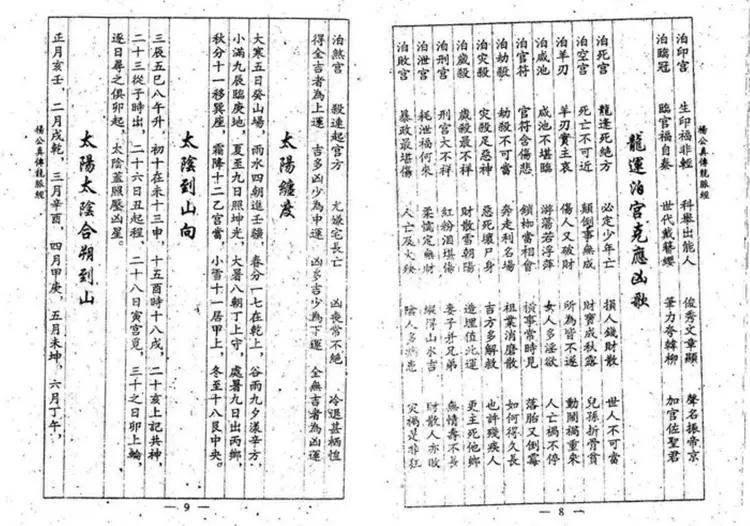 楊公真傳龍脈經
泊印宮 生印福非輕 科舉出能人 俊秀文章顯 聲名振帝京
泊臨冠 臨官福自奏 世代戴簪纓 筆力夸韓柳 加官佐聖君
龍運泊宮克應凶歌
泊死宮 龍逢死絕方 必定少年亡 損人錢財散 世人不可當
泊空宮 死亡不可近 顛倒事無成 財寶成秋露 兒孫折骨貧
泊羊刃 羊刃實主哀 傷人又破財 所為皆不遂 動關禍重來
泊咸池 咸池不堪臨 游蕩若浮萍 女人多淫欲 人亡禍不停
泊官符 官符含傷悲 鎖枷當相會 橫事常時見 落胎又倒霉
泊劫殺 劫殺不可當 奔走利名場 祖業消磨散 如何得久長
泊災殺 災殺足惡神 惡死壞尸身 吉方多解救 也許殘疾人
泊歲殺 歲殺最不祥 財散雪朝陽 造埋值此運 更主死他鄉
泊刑宮 刑宮大不祥 紅粉淚堪傷 妻子並兄弟 無情壽不長
泊泄宮 耗泄福何來 柔懦定無財 縱得山水吉 財散人亦敗
泊敗宮 暴政最堪傷 人亡及火殃 陰人多病患 災禍是非狂
— 8 —
泊煞宮 殺連起官方 尤嫌宅長亡 凶喪常不絕 冷退甚栖惶
得全吉者為上運 吉多凶少為中運 凶多吉少為下運 全無吉者為凶運
太陽纏度
大寒五日癸山場，雨水四朝進壬鑛，春分一七在乾上，谷雨九夕蓬辛方，
小滿九辰臨庚地，夏至九日照坤光，大暑八朝丁上守，處暑九日出丙鄉，
秋分十一移巽座，霜降十二乙宮當，小雪十一居甲上，冬至十八艮中央。
太陰到山向
三辰五巳八午升，初十在未十三申，十五酉時十八戌，二十亥上記共神，
二十三從子時出，二十六日丑起程，二十八日寅宮覓，三千之日卯上輪，
逐日尋之俱卯起，太陰蓋照壓凶星。
太陽太陰合朔到山
正月亥壬，二月戌乾，三月辛酉，四月甲庚，五月未坤，六月丁午，
楊公真傳龍脈經
— 9 —